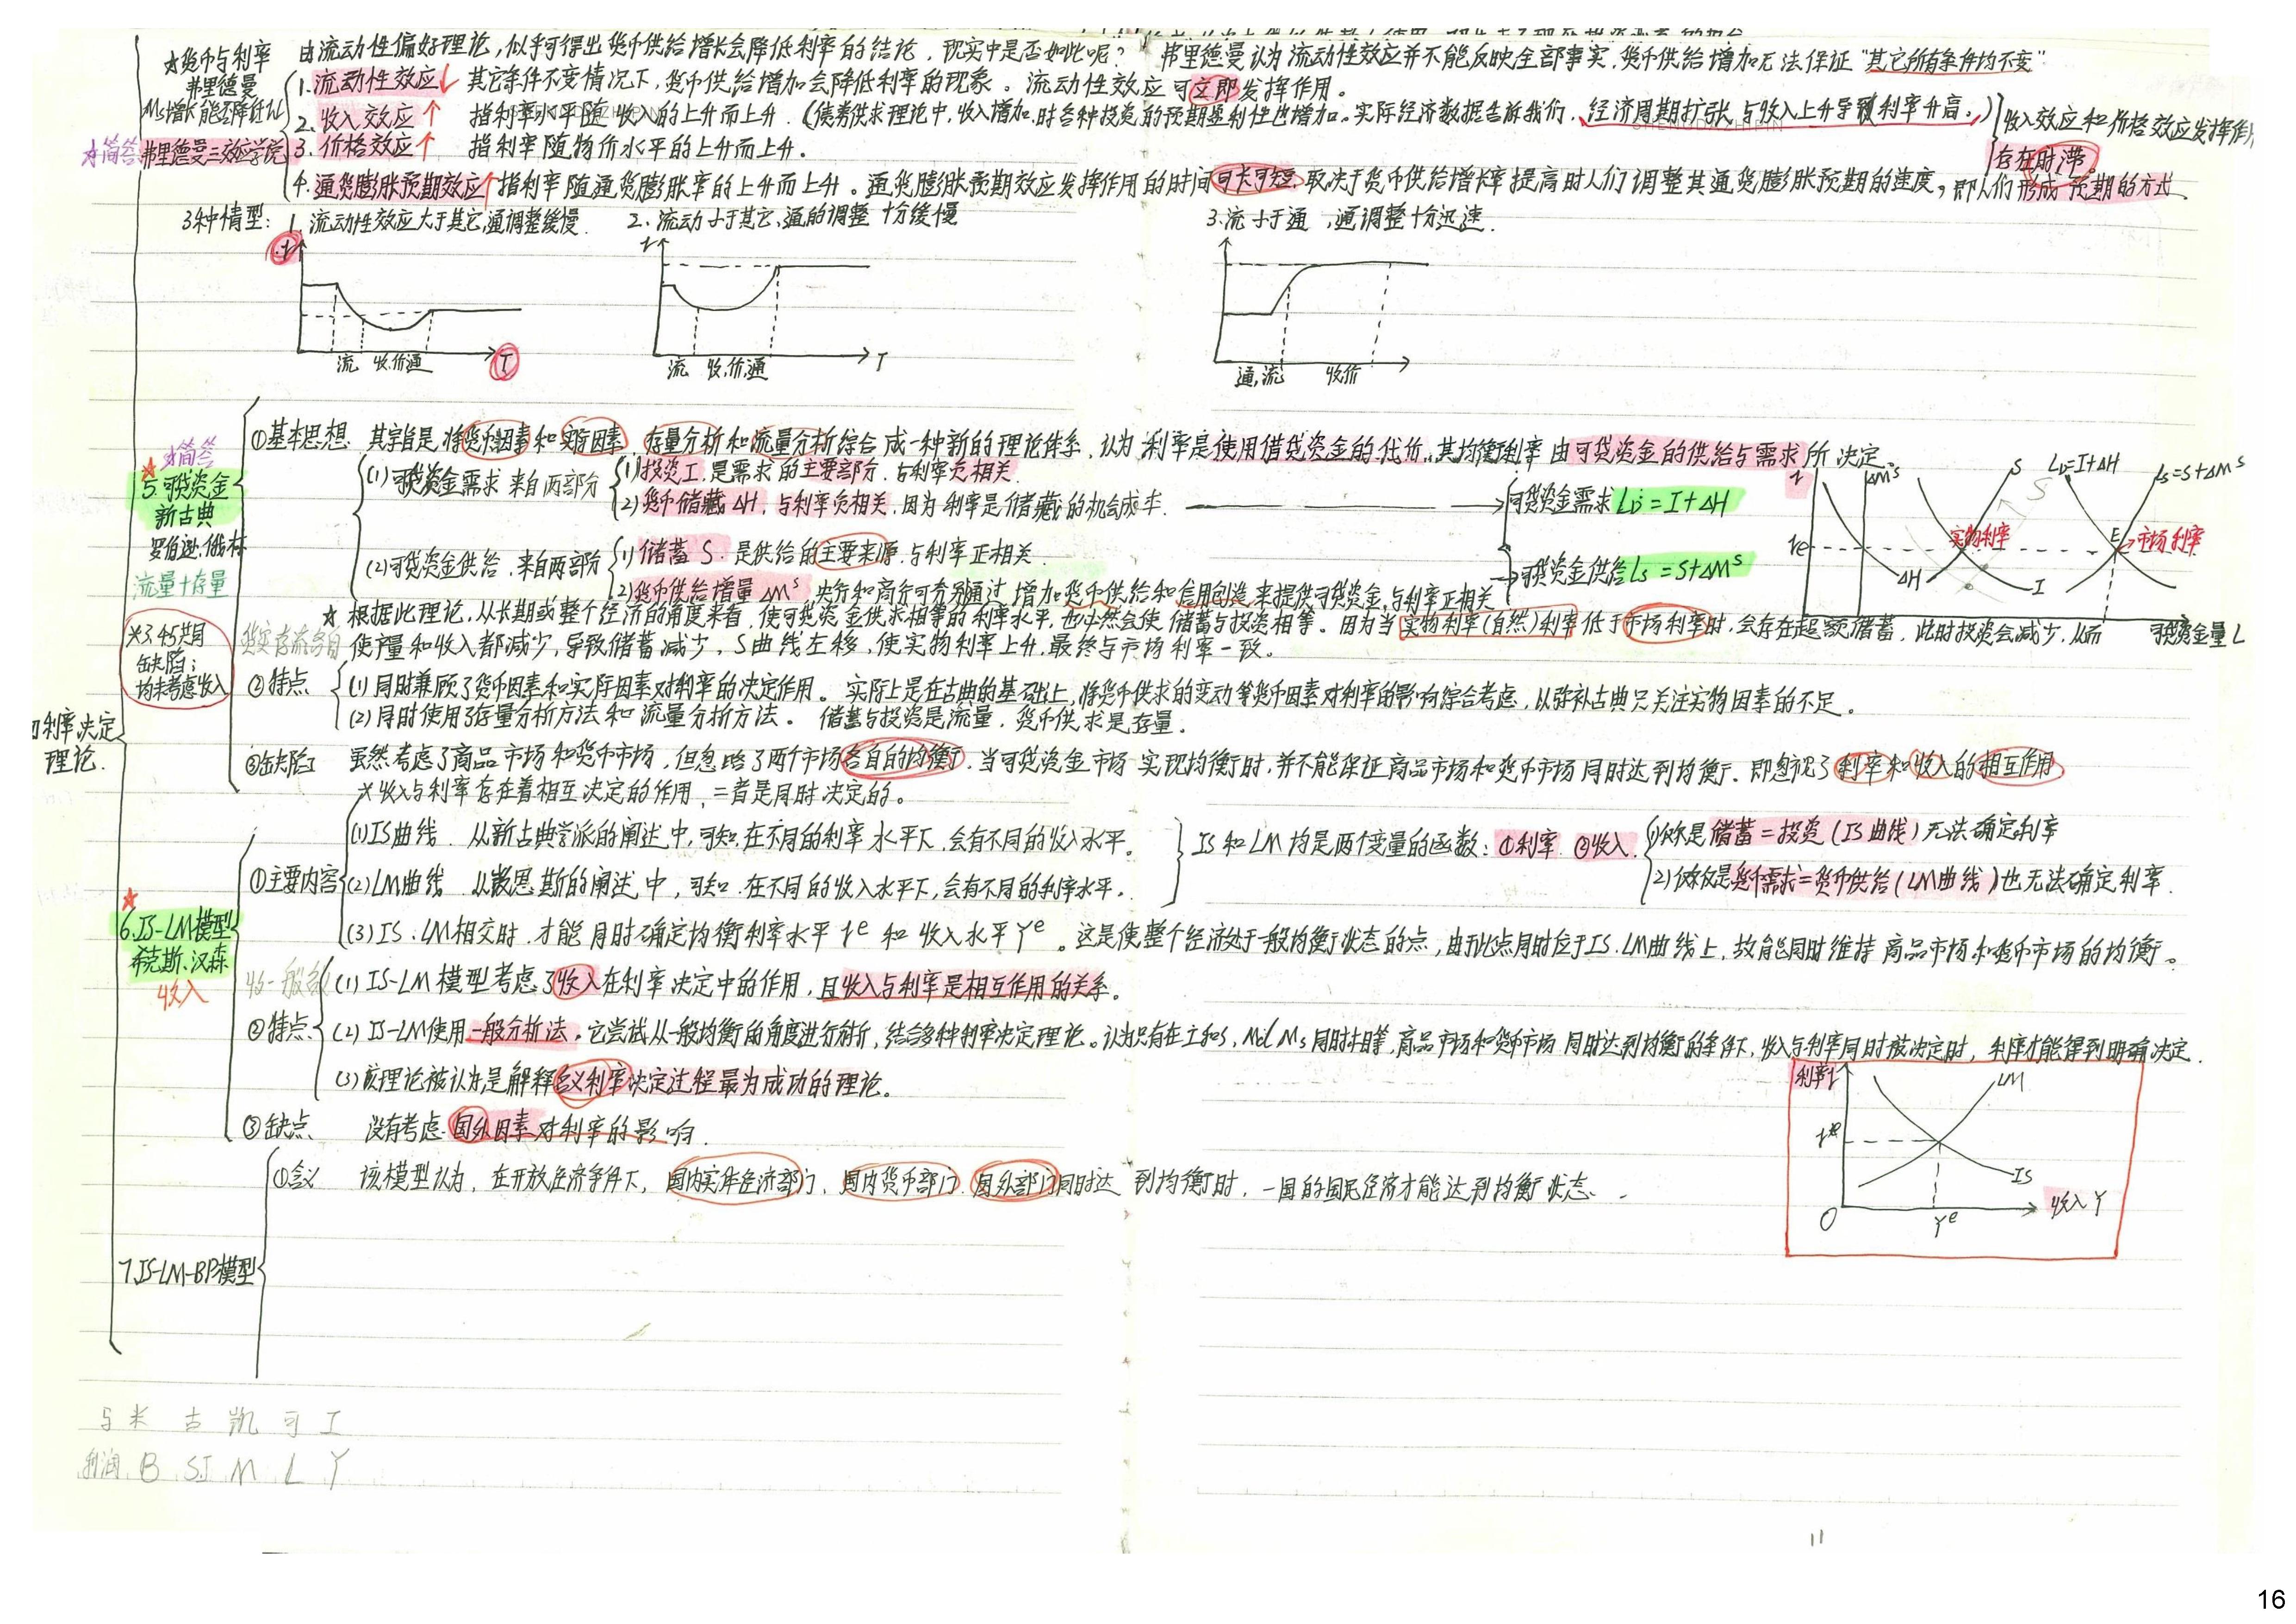 ☆货币与利率 由流动性偏好理论,似乎可得出货币供给增长会降低利率的结论,现实中是否如此呢? 弗里德曼认为流动性效应并不能反映全部事实,货币供给增加无法保证"其它所有条件均不变"
弗里德曼
Ms增长能否降低
☆简答 弗里德曼三效应学院
1.流动性效应↓ 其它条件不变情况下,货币供给增加会降低利率的现象。流动性效应可立即发挥作用。
2.收入效应↑ 指利率水平随收入的上升而上升.(债券供求理论中,收入增加时各种投资的预期盈利性也增加。实际经济数据告诉我们,经济周期扩张与收入上升导致利率升高。)
3.价格效应↑ 指利率随物价水平的上升而上升。
收入效应和价格效应发挥作用
存在时滞。
4.通货膨胀预期效应↑指利率随通货膨胀率的上升而上升。通货膨胀预期效应发挥作用的时间可长可短,取决于货币供给增长率提高时人们调整其通货膨胀预期的速度,即人们形成预期的方式.
3种情型: 1.流动性效应大于其它,通调整缓慢. 2.流动小于其它,通的调整十分缓慢 3.流小于通,通调整十分迅速.
r
r
流 收,价,通 T
流 收,价,通 T
通,流 收价
☆简答
5.可贷资金
新古典
罗伯逊.俄林
流量+存量
①基本思想 其宗旨是,将货币因素和实际因素,存量分析和流量分析综合成一种新的理论体系,认为利率是使用借贷资金的代价,其均衡利率由可贷资金的供给与需求所决定.
(1)可贷资金需求 来自两部分 1)投资I,是需求的主要部分,与利率负相关.
2)货币储藏ΔH,与利率负相关,因为利率是储藏的机会成本. → 可贷资金需求 LD=I+ΔH
(2)可贷资金供给,来自两部分 1)储蓄S.是供给的主要来源,与利率正相关.
2)货币供给增量ΔMs,央行和商行可分别通过增加货币供给和信用创造来提供可贷资金,与利率正相关 → 可贷资金供给Ls=S+ΔMs
r ΔMs S LD=I+ΔH Ls=S+ΔMs
S
re 实物利率 E 市场利率
ΔH I
可贷资金量L
☆根据此理论,从长期或整个经济的角度来看,使可贷资金供求相等的利率水平,也必然会使储蓄与投资相等。因为当实物利率(自然)利率低于市场利率时,会存在超额储蓄,此时投资会减少,从而
使产量和收入都减少,导致储蓄减少,S曲线左移,使实物利率上升,最终与市场利率一致。
※3.4.5共同
缺陷:
均未考虑收入
货实存流各自
②特点 (1)同时兼顾了货币因素和实际因素对利率的决定作用。实际上是在古典的基础上,将货币供求的变动等货币因素对利率的影响综合考虑,以弥补古典只关注实物因素的不足。
(2)同时使用了存量分析方法和流量分析方法。储蓄与投资是流量,货币供求是存量。
利率决定
理论.
③缺陷 虽然考虑了商品市场和货币市场,但忽略了两个市场各自的均衡.当可贷资金市场实现均衡时,并不能保证商品市场和货币市场同时达到均衡.即忽视了利率和收入的相互作用
※收入与利率存在着相互决定的作用,二者是同时决定的。
6.IS-LM模型
希克斯、汉森
收入
①主要内容
(1)IS曲线.从新古典学派的阐述中,可知,在不同的利率水平下,会有不同的收入水平。
(2)LM曲线 从凯恩斯的阐述中,可知.在不同的收入水平下,会有不同的利率水平。
IS和LM均是两个变量的函数:①利率 ②收入.
1)仅仅是储蓄=投资(IS曲线)无法确定利率
2)仅仅是货币需求=货币供给(LM曲线)也无法确定利率.
(3)IS.LM相交时,才能同时确定均衡利率水平re和收入水平Ye。这是使整个经济处于一般均衡状态的点,由于此点同时位于IS.LM曲线上,故能同时维持商品市场和货币市场的均衡。
②特点
(1)IS-LM模型考虑了收入在利率决定中的作用,且收入与利率是相互作用的关系。
(2)IS-LM使用一般分析法.它尝试从一般均衡的角度进行分析,结合多种利率决定理论。认为只有在I和S,Md Ms同时相等,商品市场和货币市场同时达到均衡的条件下,收入与利率同时被决定时,利率才能得到明确决定.
(3)该理论被认为是解释名义利率决定过程最为成功的理论。
③缺点 没有考虑国外因素对利率的影响.
利率r LM
re
IS
O Ye 收入Y
7.IS-LM-BP模型
①含义 该模型认为,在开放经济条件下,国内实体经济部门、国内货币部门、国外部门同时达到均衡时,一国的国民经济才能达到均衡状态.
古 凯 可 I
利润 B SI M L Y
11
16